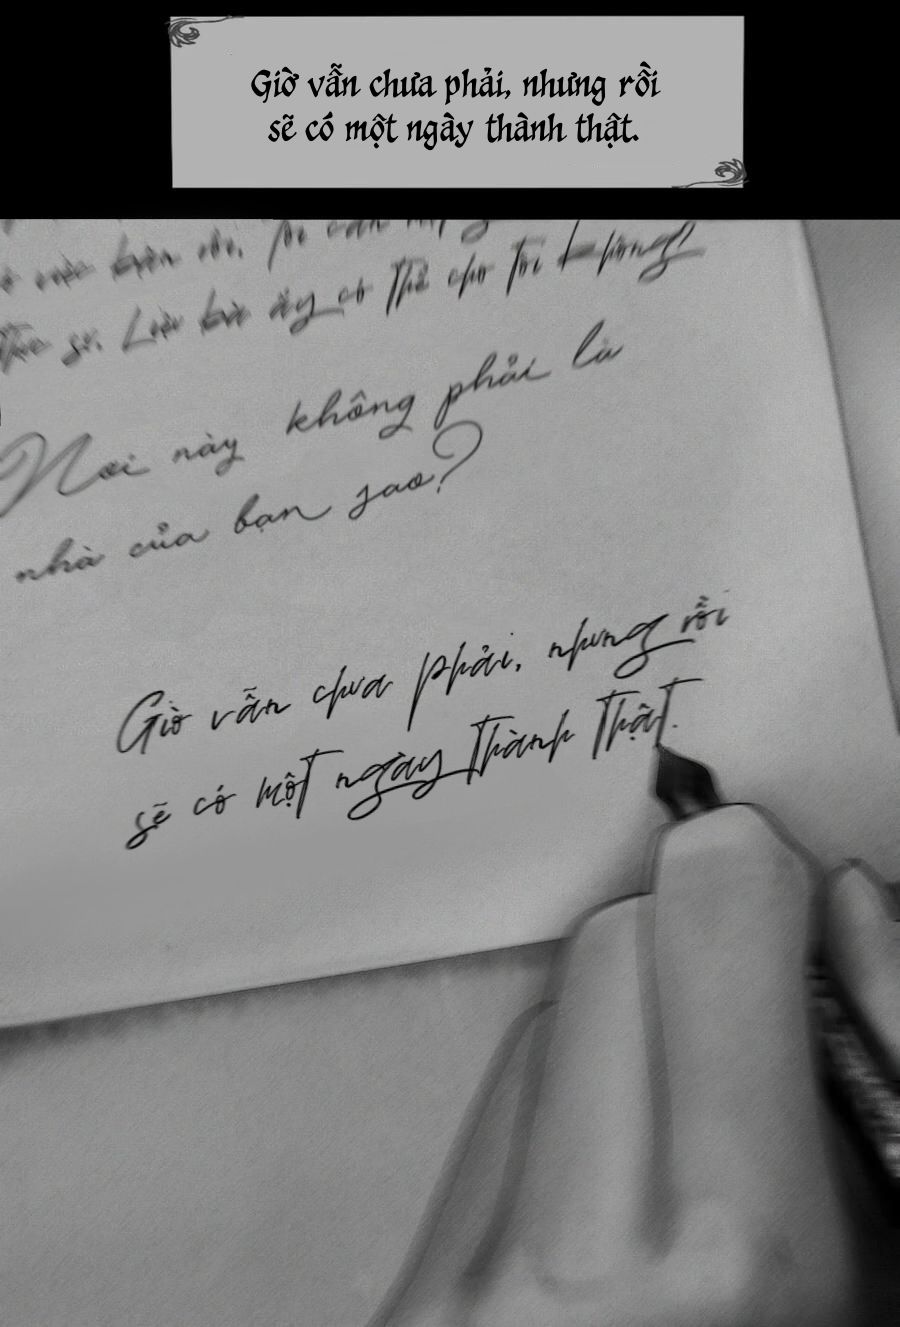 Giờ vẫn chưa phải, nhưng rồi
sẽ có một ngày thành thật.
có thể cho tôi không?
Nơi này không phải là
nhà của bạn sao?
Giờ vẫn chưa phải, nhưng rồi
sẽ có một ngày thành thật.